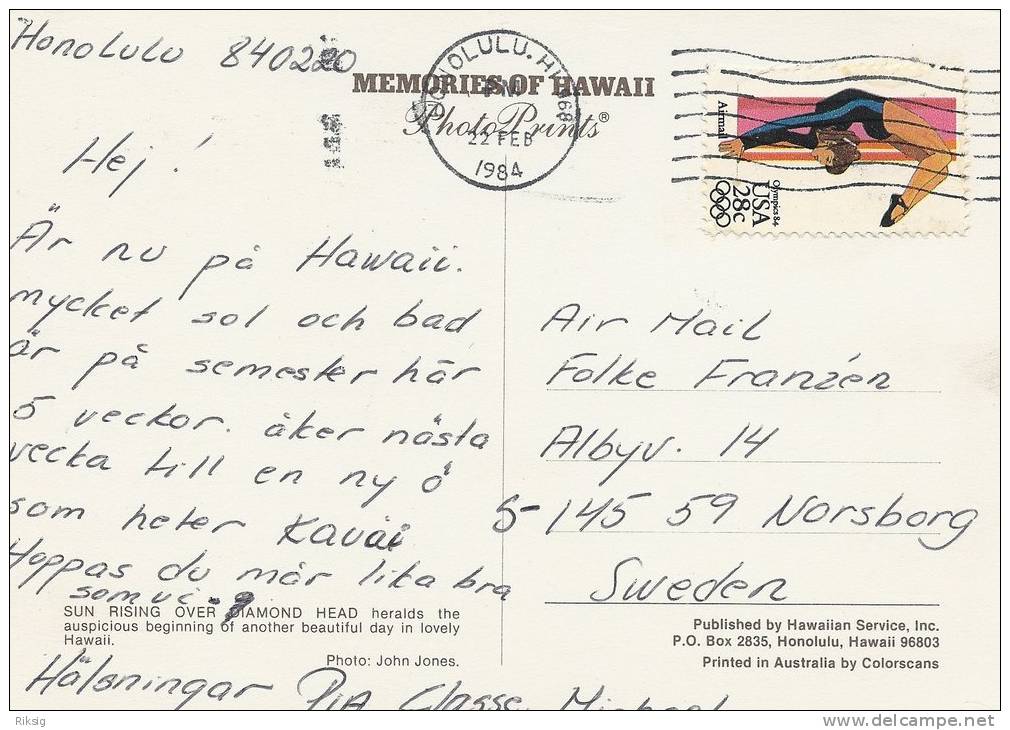 Honolulu 840220
Hej!
Är nu på Hawaii.
mycket sol och bad
är på semester här
5 veckor. åker nästa
vecka till en ny ö
som heter Kauai
Hoppas du mår lika bra
som vi.
SUN RISING OVER DIAMOND HEAD heralds the
auspicious beginning of another beautiful day in lovely
Hawaii.
Photo: John Jones.
Hälsningar Pia Classe, Michael
MEMORIES OF HAWAII
PhotoPrints®
HONOLULU, HI 968
PM
22 FEB
1984
Airmail
Olympics 84
USA
28c
Air Mail
Folke Franzén
Albyv. 14
S-145 59 Norsborg
Sweden
Published by Hawaiian Service, Inc.
P.O. Box 2835, Honolulu, Hawaii 96803
Printed in Australia by Colorscans
Riksig
delcampe.net